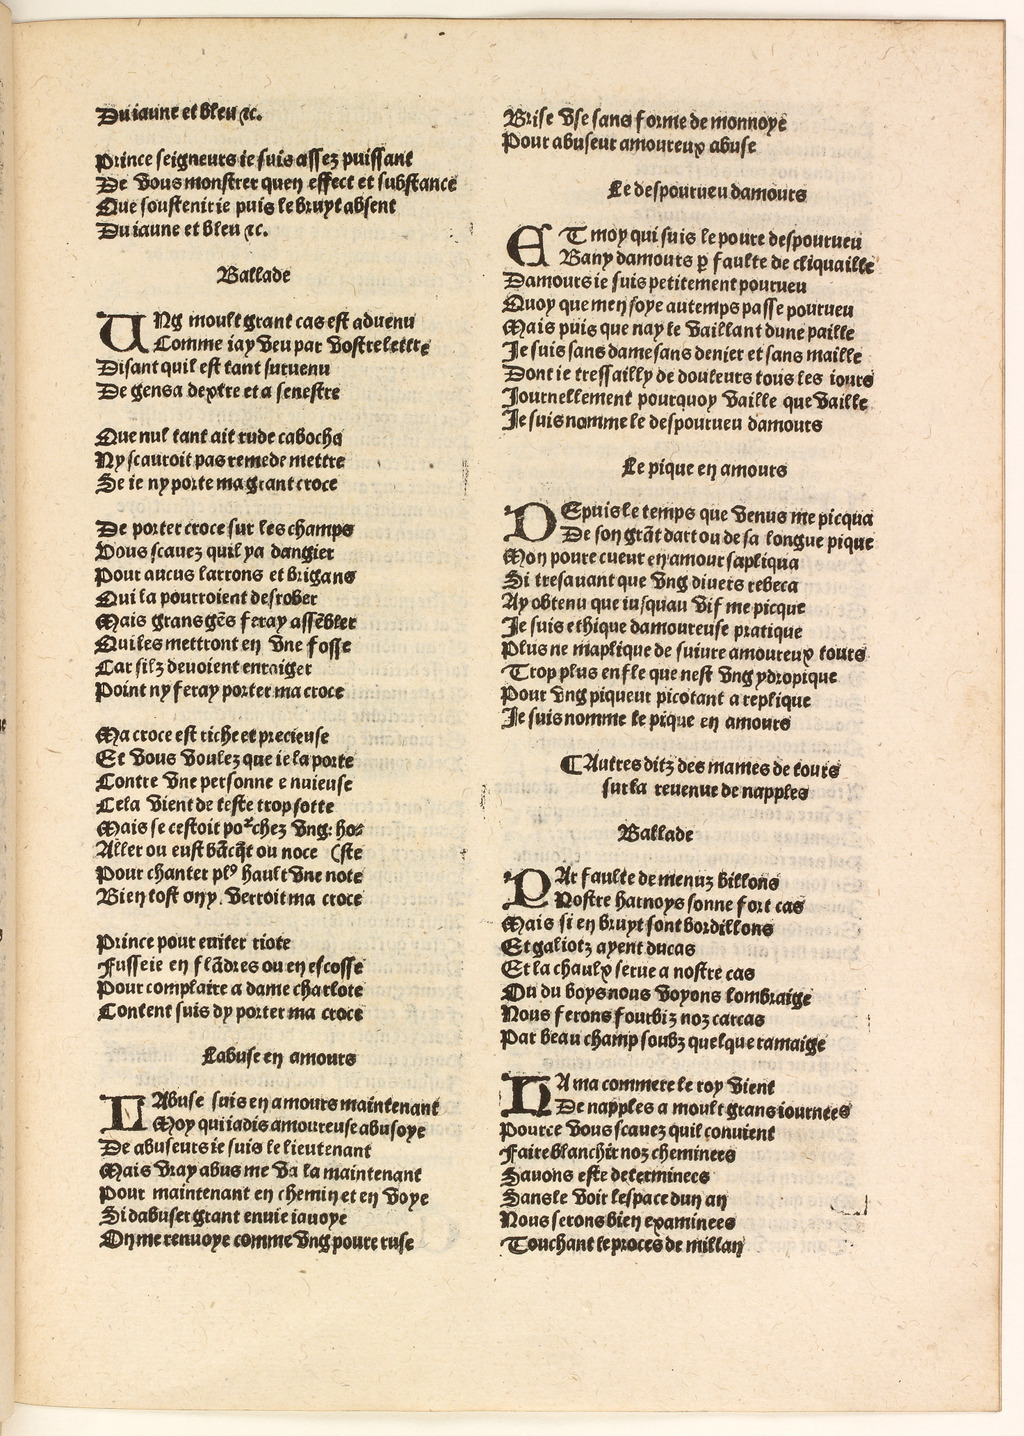 Du iaune et bleu ⁊c.
Prince seigneurs ie suis assez puissant
De vous monstrer quen effect et substance
Que soustenir ie puis le bruyt absent
Du iaune et bleu ⁊c.
Ballade
UNg moult grant cas est aduenu
Comme iay veu par vostre lettre
Disant quil est tant suruenu
De gens a dextre et a senestre
Que nul tant ait rude caboche
Ny scauroit pas remede mettre
Se ie ny porte ma grant croce
De porter croce sur les champs
Vous scauez quil ya dangier
Pour aucus larrons et brigans
Qui la pourroient desrober
Mais grans gẽs feray assẽbler
Qui les mettront en vne fosse
Car silz deuoient enraiger
Point ny feray porter ma croce
Ma croce est riche et precieuse
Et vous voulez que ie la porte
Contre vne personne enuieuse
Cela vient de teste trop sotte
Mais se cestoit por chez vng: hos
Aller ou eust bãcq̃t ou noce (ste
Pour chanter plꝰ hault vne note
Bien tost on y. verroit ma croce
Prince pour euiter riote
Fusse ie en flãdres ou en escosse
Pour complaire a dame charlote
Content suis dy porter ma croce
Labuse en amours
LAbuse suis en amours maintenant
Moy qui iadis amoureuse abusoye
De abuseurs ie suis le lieutenant
Mais vray abus me va la maintenant
Pour maintenant en chemin et en voye
Si dabuser grant enuie iauoye
On me renuoye comme vng poure ruse
Brise vse sans forme de monnoye
Pour abuseur amoureux abuse
Le despourueu damours
ET moy qui suis le poure despourueu
Bany damours ꝑ faulte de cliquaille
Damours ie suis petitement pourueu
Quoy que men soye au temps passe pourueu
Mais puis que nay le vaillant dune paille
Je suis sans dame sans denier et sans maille
Dont ie tressailly de douleurs tous les iours
Journellement pourquoy vaille que vaille
Je suis nomme le despourueu damours
Le pique en amours
DEpuis le temps que venus me picqua
De son grãt dart ou de sa longue pique
Mon poure cueur en amour sapliqua
Si tresauant que vng diuers rebeca
Ay obtenu que iusquau vif me picque
Je suis ethique damoureuse pratique
Plus ne maplique de suiure amoureux tours
Trop plus enfle que nest vng ydropique
Pour vng piqueur picotant a replique
Je suis nomme le pique en amours
¶Autres ditz des mames de tours
sur la reuenue de napples
Ballade
PAr faulte de menuz billons
Nostre harnoys sonne fort cas
Mais si en bruyt sont bordillons
Et galiotz ayent ducas
Et la chaulx serue a nostre cas
Ou du boys nous voyons lombraige
Nous ferons fourbiz noz carcas
Par beau champ soubz quelque ramaige
HA ma commere le roy vient
De napples a moult grans iournees
Pource vous scauez quil conuient
Faire blanchir noz cheminees
Sauons este determinees
Sans le voir lespace dun an
Nous serons bien examinees
Touchant le proces de millan